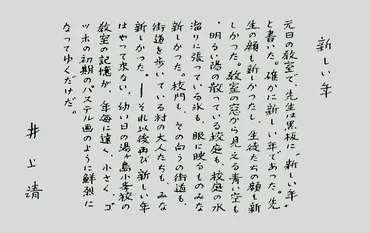 新しい年
元日の教室で、先生は黒板に「新しい年」
と書いた。確かに新しい年であった。先
生の顔も新しかったし、生徒たちの顔も新
しかった。教室の窓から見える青い空も
、明るい陽の散っている校庭も、校庭の水
溜りに張っている氷も、眼に映るものみな
新しかった。校門も、その向うの街道も、
街道を歩いている村の大人たちも、みな
新しかった。――それ以後再び新しい年
はやって来ない。幼い日の湯ヶ島小学校の
教室の記憶が、年毎に遠く、小さく、ゴ
ッホの初期のパステル画のように鮮烈に
なってゆくだけだ。
井上靖